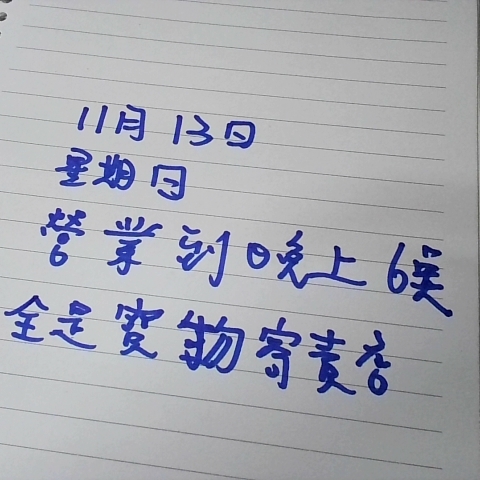 11月13日
星期日
營業到晚上6點
全是寶物寄賣店